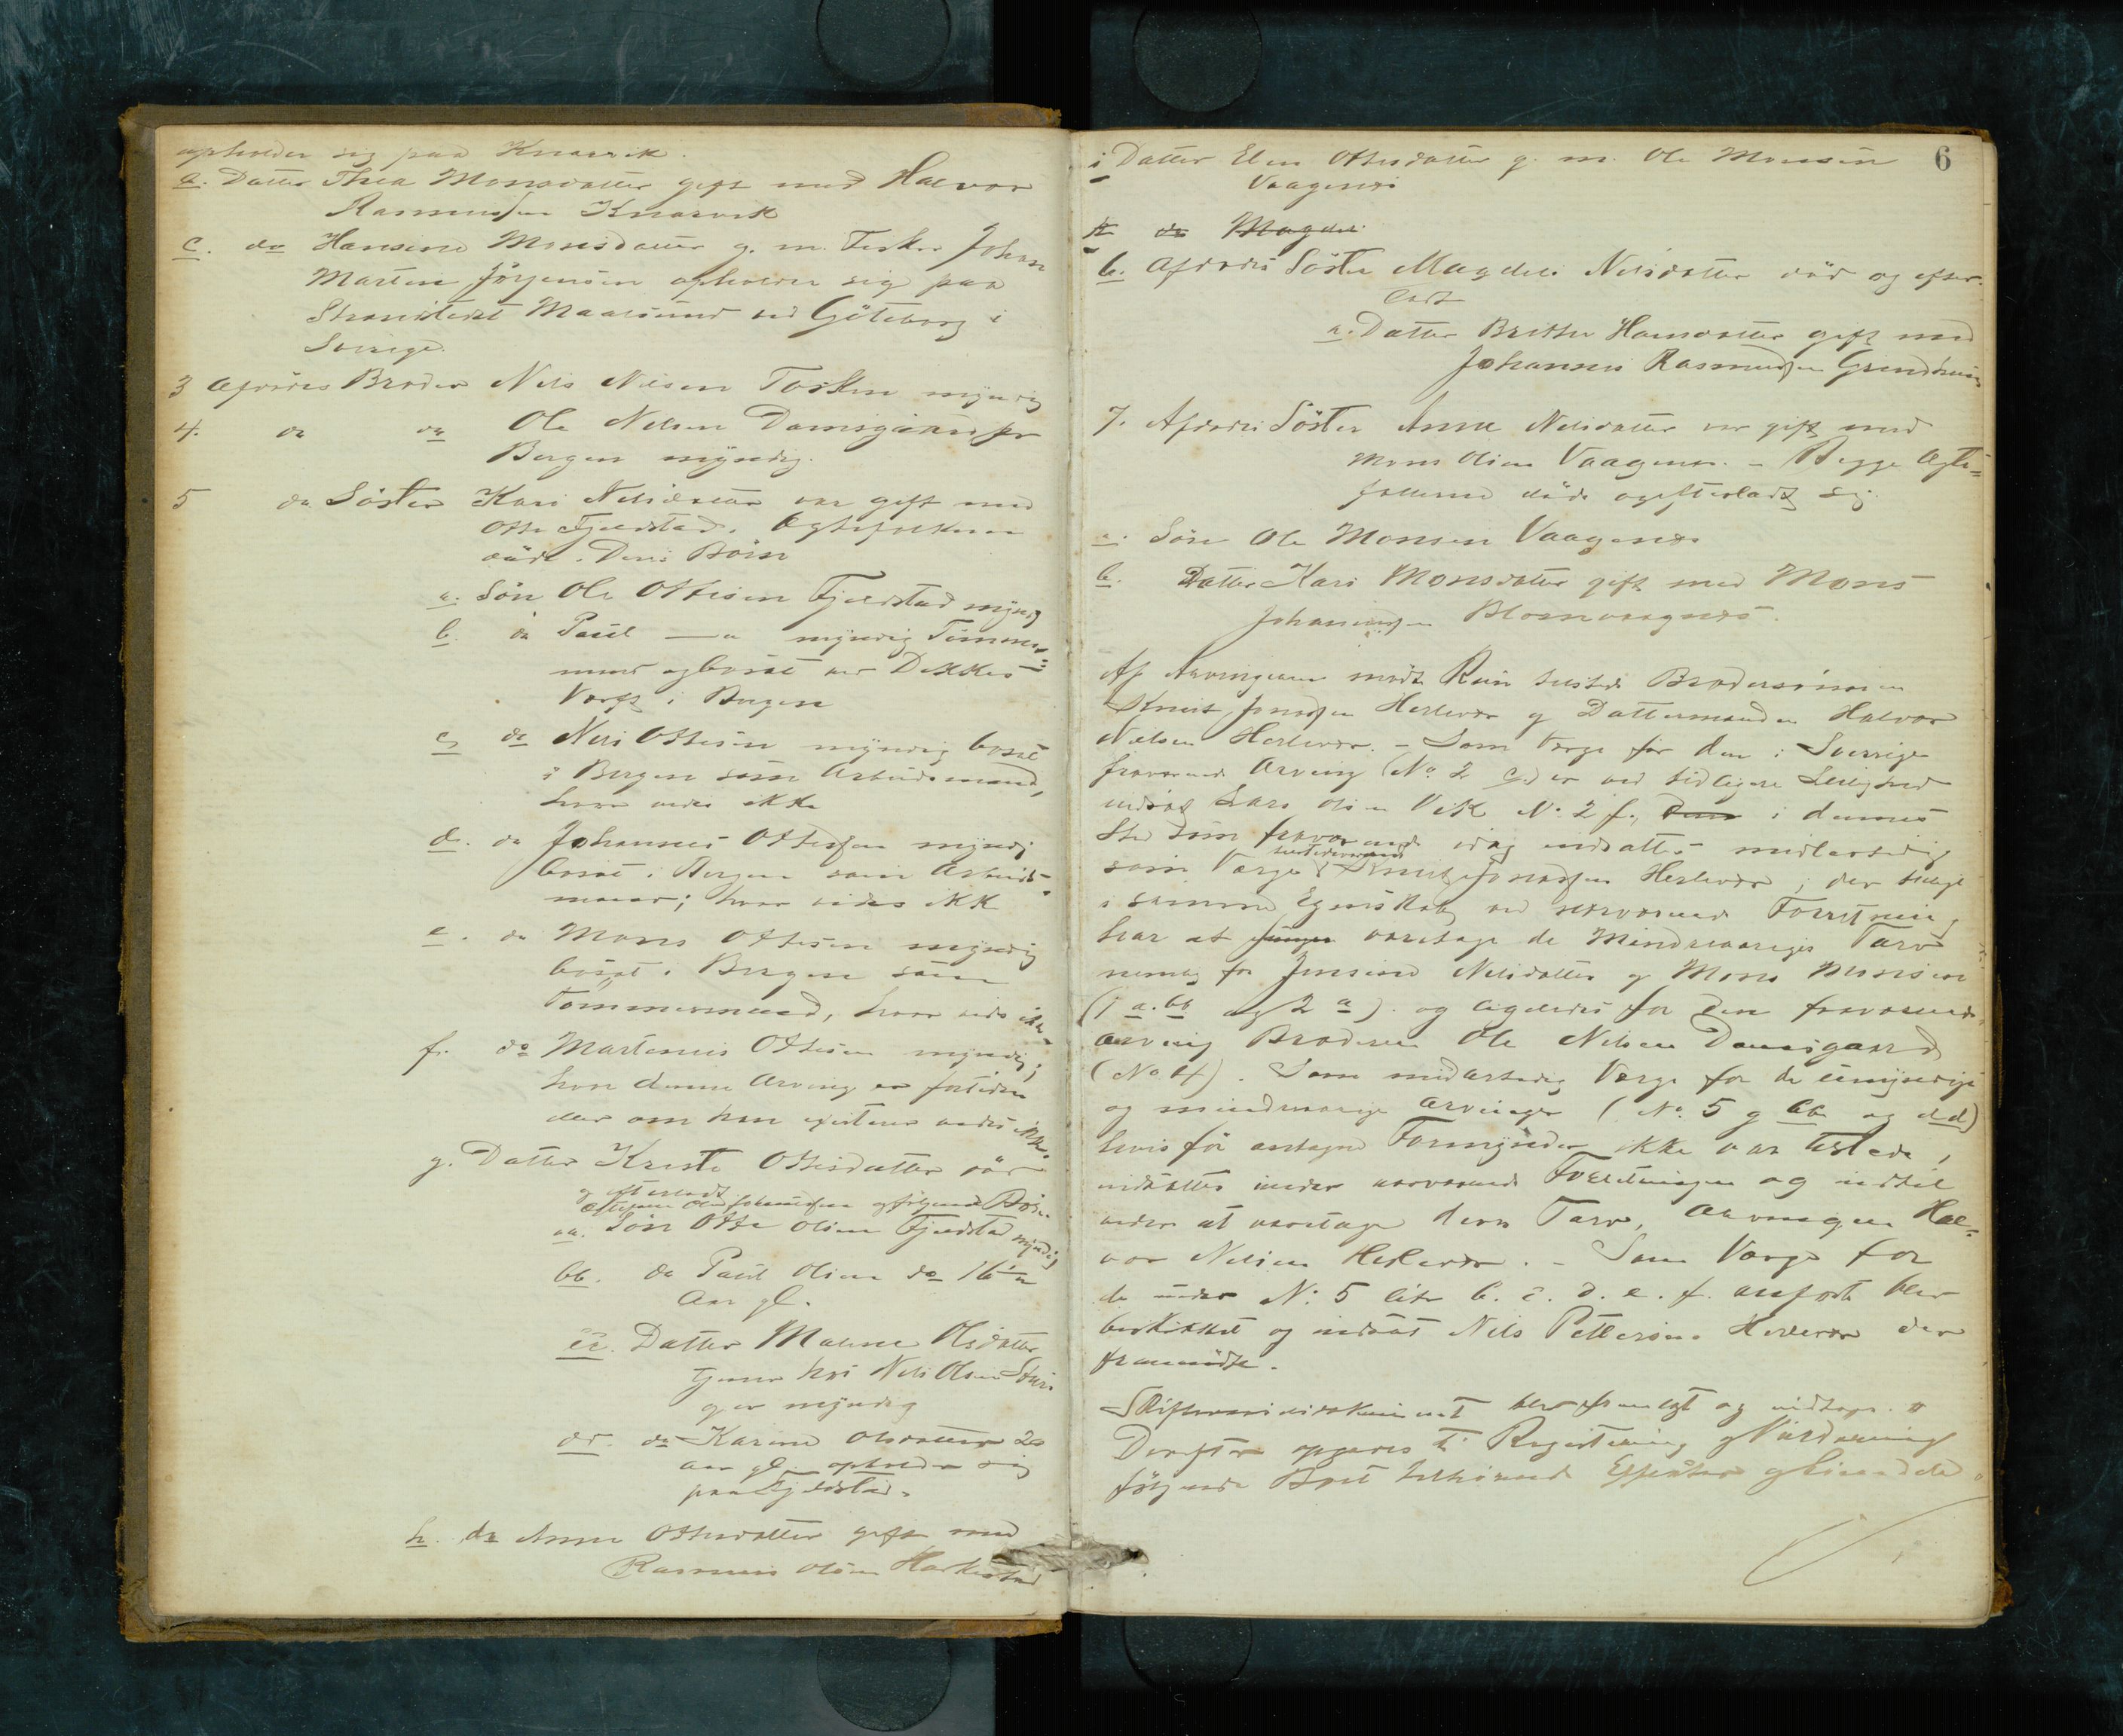 opholder sig paa Knarvik.
a. Datter Thea Monsdatter gift med Halvor
Rasmussen Knarvik
c. do Hansine Monsdatter g. m. Fisker Johan
Martin Jörgensen opholder sig paa
Strandstedet Maalsund ved Göteborg i
Sverige.
3 Afdödes Broder Nils Nilsen Tosken myndig
4. do do Ole Nilsen Damsgaard pr
Bergen myndig.
5 do Söster Kari Nilsdatter var gift med
Otte Fjeldstad. Ægtefolkene
döde. Deres Börn
a. Sön Ole Ottesen Fjeldstad myndig
b. do Paul —"— myndig Tömmer-
mand og bosat ved Dekkes
Værft i Bergen
c, do Nils Ottesen myndig bosat
i Bergen som Arbeidsmand,
hvor vides ikke
d. do Johannes Ottessen myndig
bosat i Bergen som Arbeids-
mand; hvor vides ikke
e. do Mons Ottesen myndig
bosat i Bergen som
Tömmermand, hvor vides ikke
f. do Martinus Ottesen myndig;
hvor denne Arving er fortiden
eller om han existerer vides ikke.
g. Datter Kristi Ottesdatter död
og efterladt
Ægtefælle Ole Johannessen og fölgende Börn
aa. Sön Otte Olsen Fjeldstad myndig
bb. do Paul Olsen do 16
Aar gl.
cc. Datter Malene Olsdatter
tjener hos Nils Olsen
og er myndig
dd. do Karine Olsdatter 20
Aar gl. opholder sig
paa Fjeldstad.
h. do Anne Ottesdatter gift med
Rasmus Olsen Harkestad
6
i Datter Elen Ottesdatter g. m. Ole Monsen
Vaagenes
k do Magdel
6. Afdödes Söster Magdeli Nilsdatter död og efter-
ladt
a. Datter Brithe Hansdatter gift med
Johannes Rasmussen
7. Afdödes Söster Anne Nilsdatter var gift med
Mons Olsen Vaagenes. – Begge Ægte-
fællerne döde og efterladt sig
a. Sön Ole Monsen Vaagenes
b. Datter Kari Monsdatter gift med Mons
Johannessen Blomvaagnes.
Af Arvingerne mödte kun tilstede Brodersönnen
Knut Jonassen Herlevær og Dattermanden Halvor
Nilsen Herlevær. – Som Værge for den i Sverrige
fraværende Arving (No 2 c) er ved tidligere Leilighed
indsat Lars Olsen Vik No 2 f., Som i dennes
Sted som fraværende idag indsattes midlertidig
som Værge tilstedeværende Knut Jonassen Herlevær, der tillige
i samme Egenskab ved nærværende Forretning
har at varetage de Mindreaariges Tarv
nemlig for Jensine Nilsdatter og Mons Monsen
(1 a. bb og 2 a). og ligeledes for den fraværende
Arving Broderen Ole Nilsen Damsgaard
(No 4). Som midlertidig Værge for de umyndige
og mindreaarige Arvinger (No. 5 g bb og dd)
hvis för antagne Formynder ikke var tilstede,
indsattes under nærværende Forretningen og indtil
videre at varetage deres Tarv, Arvingen Hal-
vor Nilsen Herlevær. – Som Værge for
de under No. 5 litr b. c. d. e. f. anförte blev
beskikket og indsat Nils Pettersen Herlevær der
fremmödte.
blev fremlagt og indtages.
Derefter opgaves til Registrering og Vurdering
fölgende Boet tilhörende Effekter og Eiendele